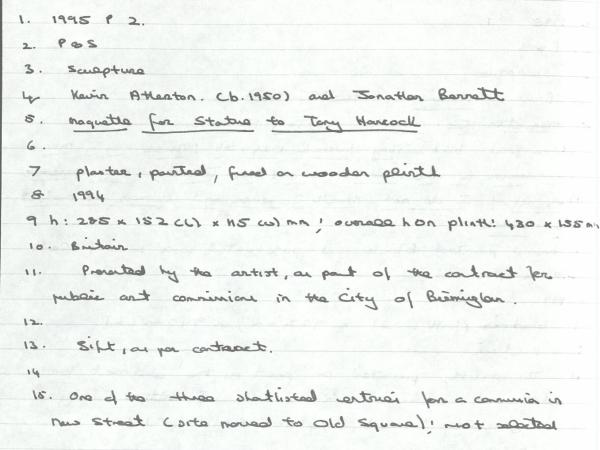 1. 1995 P 2.
2. P&S
3. Sculpture
4 Kevin Atherton. (b.1950) and Jonathan Bennett
5. Maquette for Statue to Tony Hancock
6.
7 plaster, painted, fixed on wooden plinth
8 1994
9 h: 285 x 152 (L) x 115 (w) mm; overall h on plinth: 430 x 155 mm
10. Britain
11. Presented by the artist, as part of the contract for
public art commissions in the City of Birmingham.
12.
13. Gift, as per contract.
14
15. One of the three shortlisted entries for a commission in
New Street (site moved to Old Square); not selected